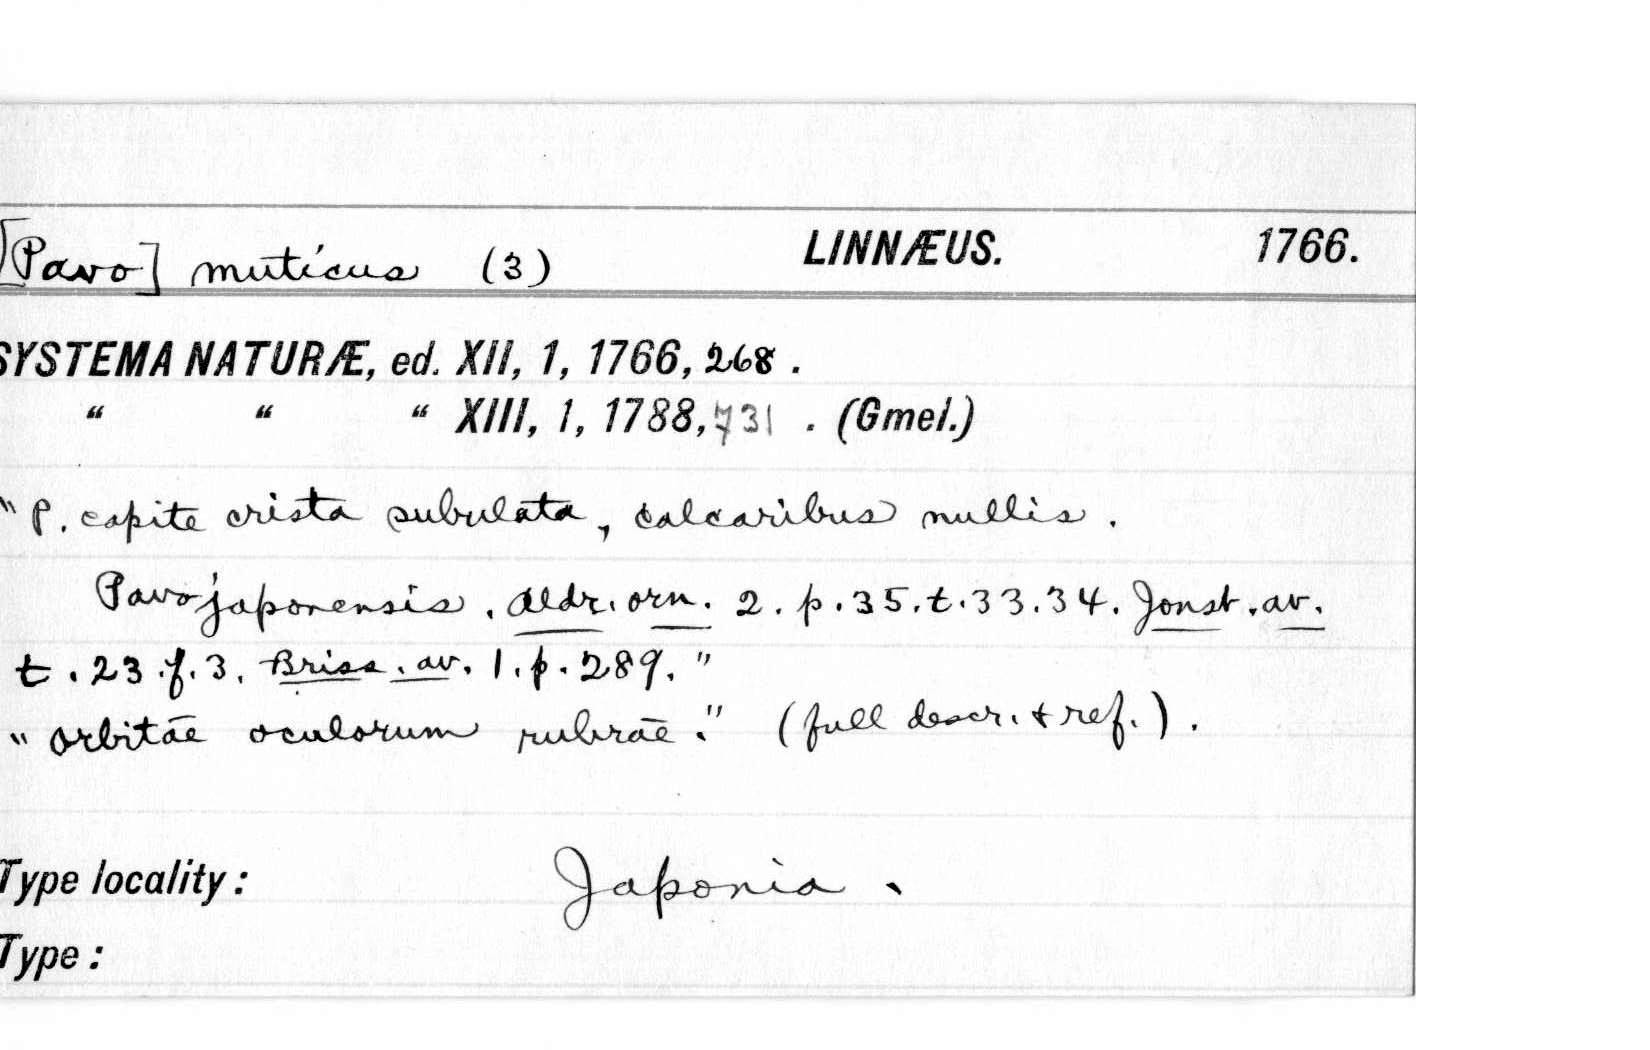 [Pavo] muticus (3) LINNÆUS. 1766.
SYSTEMA NATURÆ, ed. XII, 1, 1766, 268 .
“ “ “ XIII, 1, 1788, 731 . (Gmel.)
“ P. capite crista subulata, calcaribus nullis .
Pavo japonensis . Aldr. orn. 2. p. 35. t. 33. 34. Jonst. av.
t. 23. f. 3. Briss. av. 1. p. 289. ”
“ Orbitāe oculorum rubrāe." (full descr. & ref.) .
Type locality : Japonia .
Type :